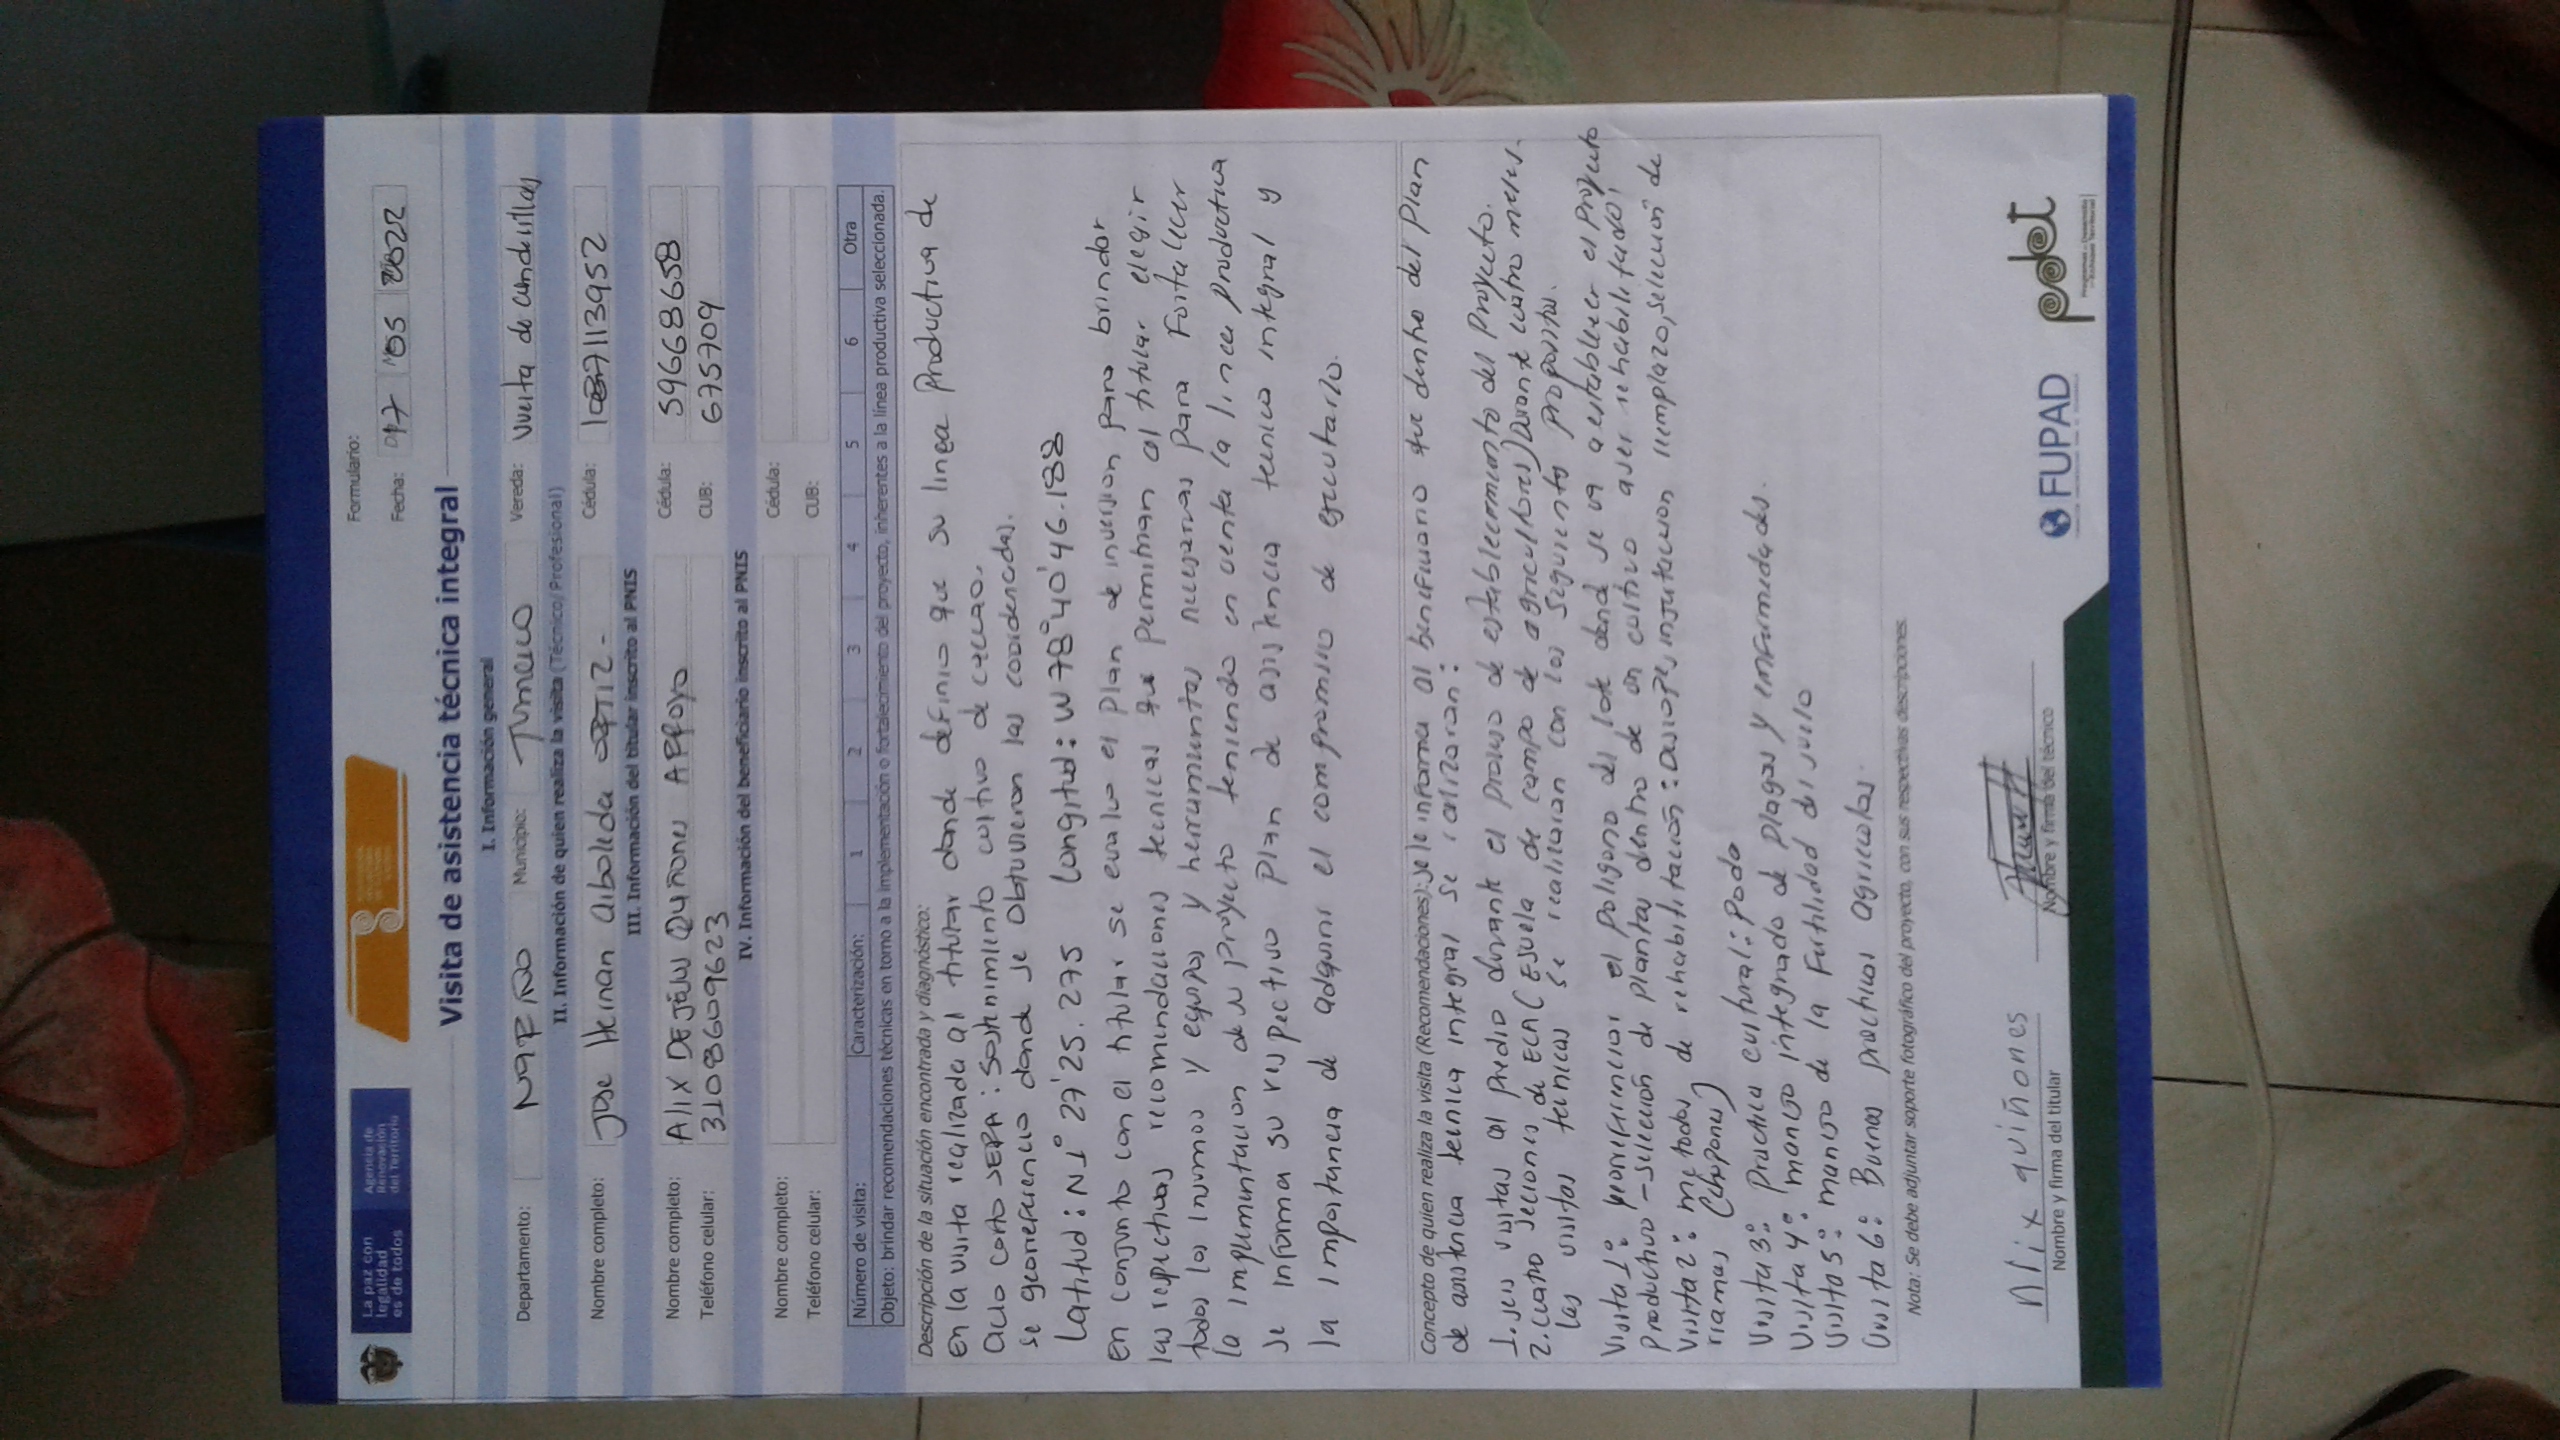 La paz con
legalidad
es de todos
Agencia de
Renovación
del Territorio
Formulario:
Fecha: 07 05 2022
Visita de asistencia técnica integral
I. Información general
Departamento: NARIÑO Municipio: TUMACO Vereda: Vuelta de candelillas
II. Información de quien realiza la visita (Técnico/Profesional)
Nombre completo: Jose Hernan arboleda ORTIZ- Cédula: 1087113952
III. Información del titular inscrito al PNIS
Nombre completo: Alix DE JESUS QUIÑONES ARROYO Cédula: 59668658
Teléfono celular: 3108609623 CUB: 675709
IV. Información del beneficiario inscrito al PNIS
Nombre completo: Cédula:
Teléfono celular: CUB:
Número de visita: Caracterización: 1 2 3 4 5 6 Otra
Objeto: brindar recomendaciones técnicas en torno a la implementación o fortalecimiento del proyecto, inherentes a la línea productiva seleccionada.
Descripción de la situación encontrada y diagnóstico:
en la visita realizada al titular donde definio que su linea Productiva de
ciclo corto SERA: Sostenimiento cultivo de cacao,
se georeferencio donde se obtuvieron las coordenadas.
Latitud: N1° 27'25.275 Longitud: W78°40'46.188
en conjunto con el titular se evaluo el plan de inversion para brindar
las respectivas recomendaciones tecnicas que permitiran al titular elegir
todos los insumos y equipos y herramientas necesarias para Fortalecer
la implementacion de su proyecto teniendo en cuenta la linea productiva
se informa su respectivo Plan de asistencia tecnico integral y
la importancia de adquirir el compromiso de ejecutarlo.
Concepto de quien realiza la visita (Recomendaciones): se le informa al beneficiario que dentro del Plan
de asistencia tecnica integral se realizaran:
1. seis visitas al predio durante el proceso de establecimiento del Proyecto.
2. cuatro secciones de ECA (Escuela de campo de agricultores) Durante cuatro meses.
las visitas tecnicas se realizaran con los siguiente propositos.
Visita 1: georeferenciar el poligono del lote donde se va a establecer el proyecto
productivo - selección de plantas dentro de un cultivo a ser rehabilitado,
Visita 2: metodos de rehabilitación: injertacion remplazo, selección de
ramas (chupones)
Visita 3: practica cultural: poda
Visita 4: manejo integrado de plagas y enfermedades.
Visita 5: manejo de la Fertilidad del suelo
Visita 6: Buenas practicas agricolas.
Nota: Se debe adjuntar soporte fotográfico del proyecto, con sus respectivas descripciones.
Alix quiñones
Nombre y firma del titular
Nombre y firma del técnico
FUPAD
pdet